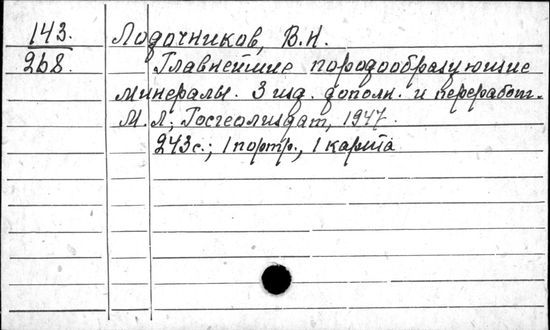 143.
268.
Лодочников, В.Н.
Главнейшие породообразующие
минералы. 3 изд. дополн. и переработ.
М.Л; Госгеолиздат, 1947.
243с.; 1 портр., 1 карта